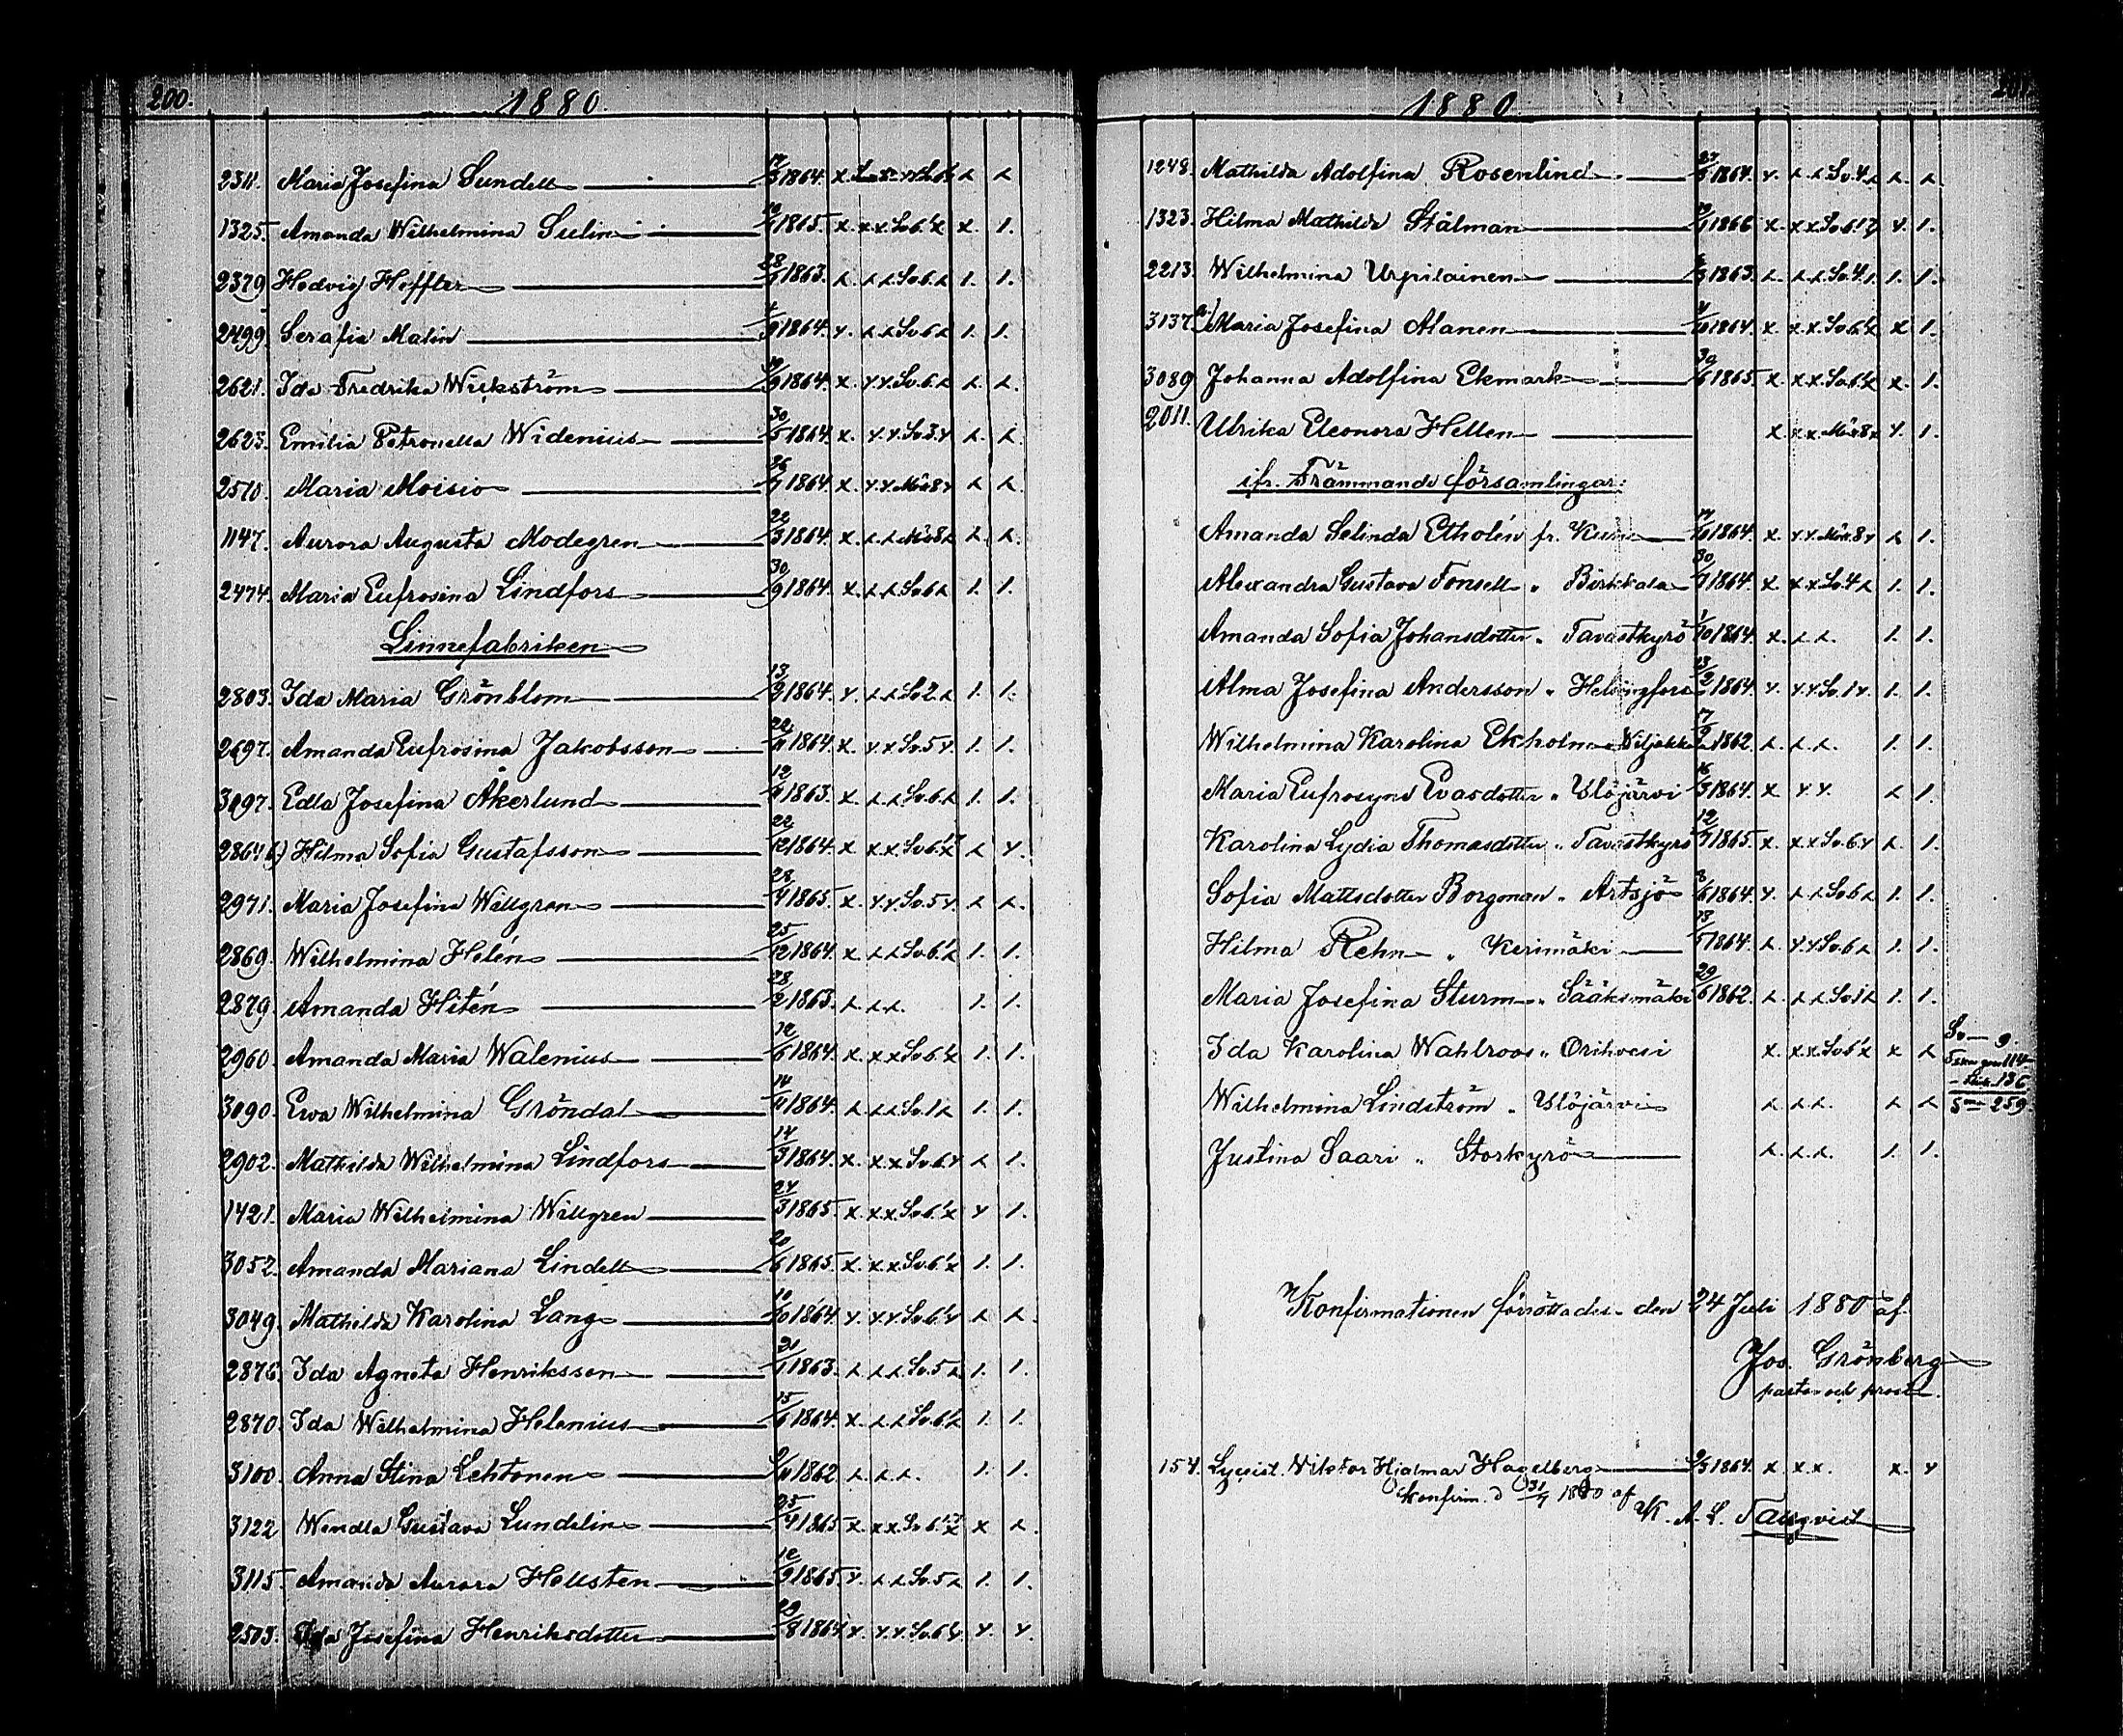 200.
1880.
2311. Maria Josefina Sundell 1864.
1325. Amanda Wilhelmina Selin 1865. x. x.x. Sv.6. x x. 1.
2379 Hedvig Heffler 1863. Sv.6. 1. 1.
2499 Serafia Malin 1864. Sv.6 1. 1.
2621. Ida Fredrika Wickström 1864. x. Sv.6.
2623. Emilia Petronella Widenius 30/5 1864. x. Sv.3.
2510. Maria Moisio 26/7 1864. x.
1147. Aurora Augusta Modegren 22/3 1864. x.
2474. Maria Eufrosina Lindfors 30/9 1864. x. Sv.6 1. 1.
Linnefabriken
2803. Ida Maria Grönblom 13/9 1864. Sv.2. 1. 1.
2697. Amanda Eufrosina Jakobsson 1864. x. Sv.5 1. 1.
3097. Edla Josefina Åkerlund 1863. x. Sv.6. 1. 1.
2864 b) Hilma Sofia Gustafsson 22/12 1864. x x.x. Sv.6.
2971. Maria Josefina Willgren 28/4 1865. x. Sv.5
2869. Wilhelmina Helén 25/12 1864. x. Sv.6. 1. 1.
2879. Amanda Hitén 28/2 1863. 1. 1.
2960. Amanda Maria Walenius 1864. x. x.x Sv.6. 1. 1.
3090. Ewa Wilhelmina Gröndal 14/11 1864. Sv.1 1. 1.
2902. Mathilda Wilhelmina Lindfors 14/3 1864. x. x.x Sv.6 1.
1421. Maria Wilhelmina Willgren 24/3 1865. x. x.x. Sv.6. 1.
3052. Amanda Mariana Lindell 20/6 1865. x. x.x. Sv.6. 1. 1.
3049. Mathilda Karolina Lang 10/10 1864. Sv.6.
2876. Ida Agneta Henriksson 1863. Sv.5 1. 1.
2870. Ida Wilhelmina Helenius 15/6 1864. x. Sv.6. 1. 1.
3100. Anna Stina Lehtonen 1862 1. 1.
3122 Wendla Gustava Lundelin 1865 x. x.x. Sv.6. x
3115. Amanda Aurora Hellsten 1865. Sv.5 1. 1.
2503. Ida Josefina Henriksdotter 1864 Sv.6
1880.
1248. Mathilda Adolfina Rosenlind 1864. Sv.4.
1323. Hilma Mathilda Stålman 1866 x. x.x. Sv.6. 1.
2213. Wilhelmina Urpilainen 1863. Sv.4. 1. 1.
3137. a) Maria Josefina Alanen 1864. x. x.x. Sv.6. x 1.
3089 Johanna Adolfina Ekmark 30/6 1865. x. x.x. Sv.6. x. 1.
2011. Ulrika Eleonora Hellen x x.x. 1.
ifr. Främmande församlingar:
Amanda Selinda Etholén fr. 1864. x. 1.
Alexandra Gustava Fonsell " Birkkala 30/7 1864. x. x.x Sv.4 1. 1.
Amanda Sofia Johansdotter " Tavastkyrö 1/10 1864. x. 1. 1.
Alma Josefina Andersson " Helsingfors 13/2 1864. Sv.1 1. 1.
Wilhelmina Karolina Ekholm " 1862. 1. 1.
Maria Eufrosyne Evasdotter " Ylöjärvi 16/3 1864. x 1.
Karolina Lydia Thomasdotter " Tavastkyrö 12/7 1865. x. x.x Sv.6 1.
Sofia Mattsdotter Borgman " Artsjö 8/6 1864. Sv.6 1. 1.
Hilma Rehn " Kerimäki 1864. Sv.6 1. 1.
Maria Josefina Sturm " Sääksmäki 29/6 1862. Sv.1 1. 1.
Ida Karolina Wahlroos " Orihvesi x. x.x. Sv.6 x x
Wilhelmina Lindström " Ylöjärvi
Justina Saari " Storkyrö 1. 1.
Sv — 9.
114
136
259.
Konfirmationen förrättades den 24 Juli 1880 af
Jos. Grönberg
pastor och prost.
154. Lyceist. Viktor Hjalmar Hagelberg 1864. x x.x. x.
Konfirm. d 31/7 1880 af
K. A. L. Tallqvist